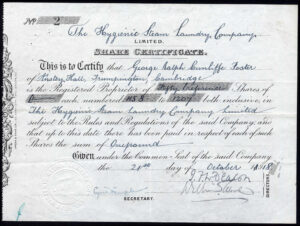 No. 2
The Hygienic Steam Laundry Company,
LIMITED.
SHARE CERTIFICATE.
This is to Certify that George Ralph Cunliffe Foster
of Anstey Hall, Trumpington, Cambridge
is the Registered Proprietor of Fifty Preference Shares of
each, numbered 1158 to 1207 both inclusive in
The Hygienic Steam Laundry Company Limited
subject to the Rules and Regulations of the said Company, and
that up to this date there has been paid in respect of each of
such Shares the sum of One pound
Given under the Common Seal of the said Company
the 21st day of October 1918
DIRECTORS.
SECRETARY.